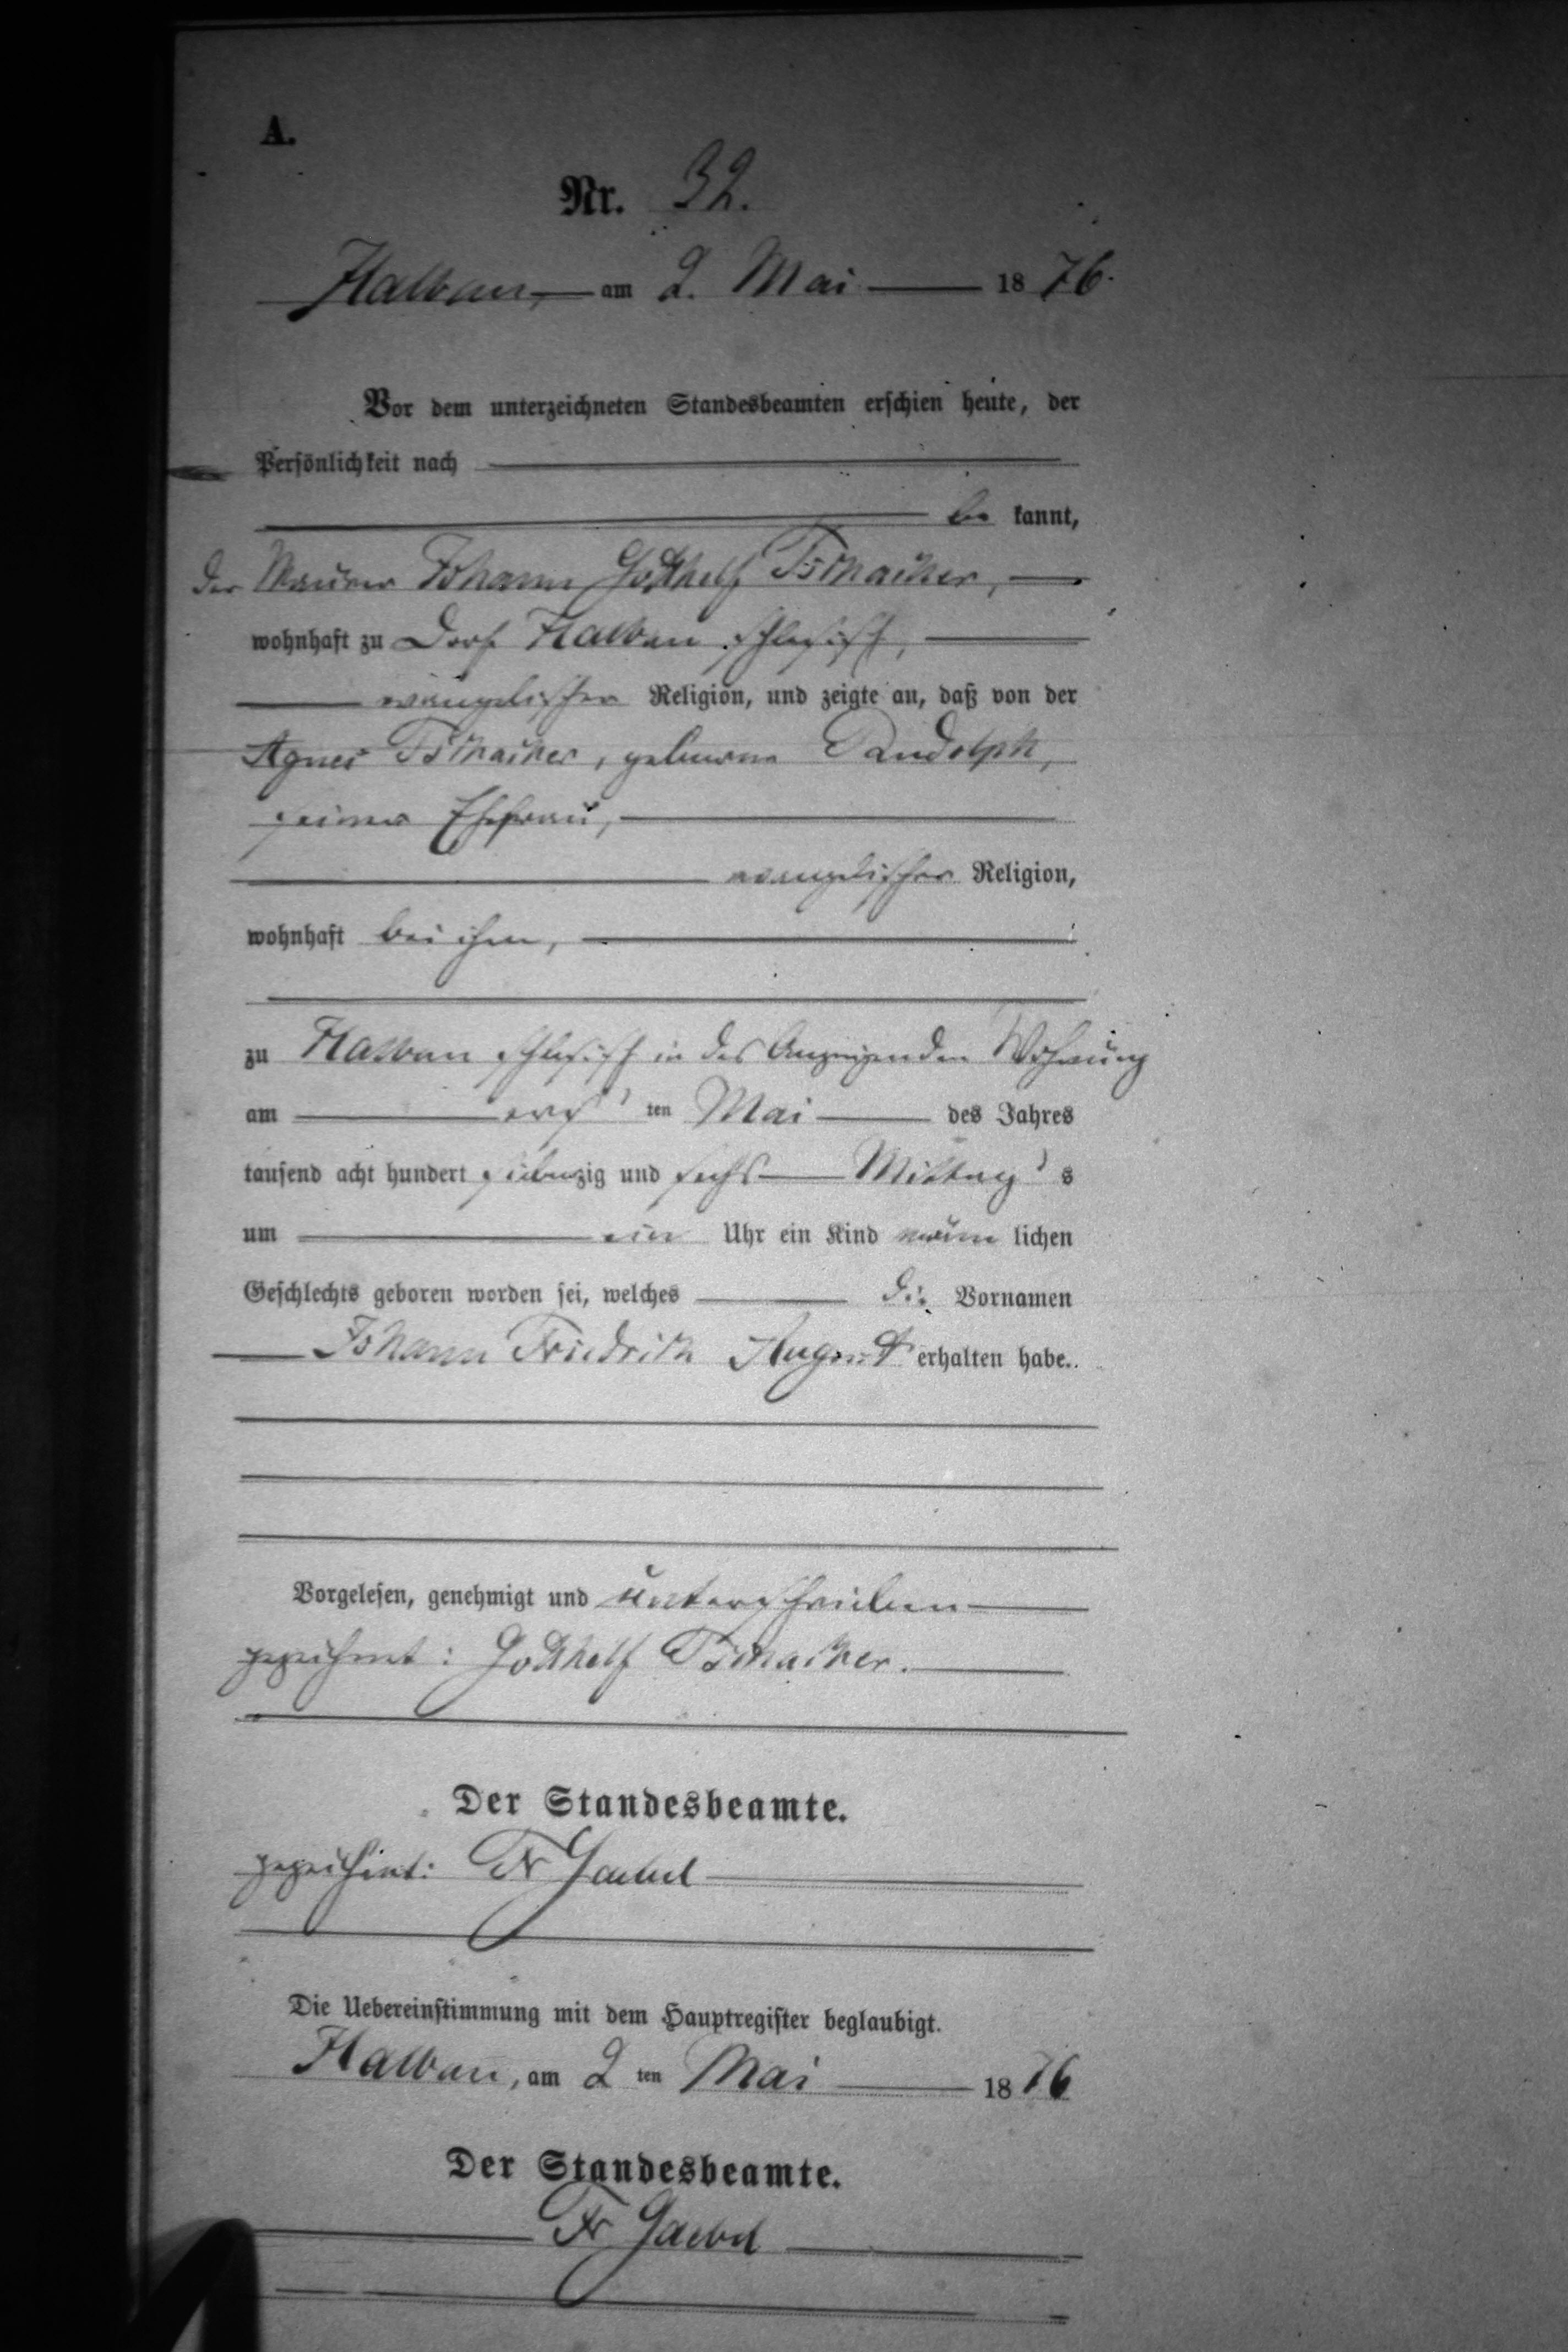 A.
Nr. 32.
Halbau, am 2. Mai 1876.
Vor dem unterzeichneten Standesbeamten erschien heute, der
Persönlichkeit nach
be kannt,
der Maurer Johann Gotthelf Tschacher,
wohnhaft zu Dorf Halbau schlesisch,
evangelischer Religion, und zeigte an, daß von der
Agnes Tschacher, geborene Randolph,
seiner Ehefrau,
evangelischer Religion,
wohnhaft bei ihm,
zu Halbau schlesisch in des Anzeigenden Wohnung
am ers ten Mai des Jahres
tausend acht hundert siebenzig und sechs Mittag s
um ein Uhr ein Kind männ lichen
Geschlechts geboren worden sei, welches die Vornamen
Johann Friedrich August erhalten habe.
Vorgelesen, genehmigt und unterschrieben
gezeichnet: Gotthelf Tschacher.
Der Standesbeamte.
gezeichnet: Fr Gaebel
Die Uebereinstimmung mit dem Hauptregister beglaubigt.
Halbau, am 2 ten Mai 1876
Der Standesbeamte.
Fr Gaebel